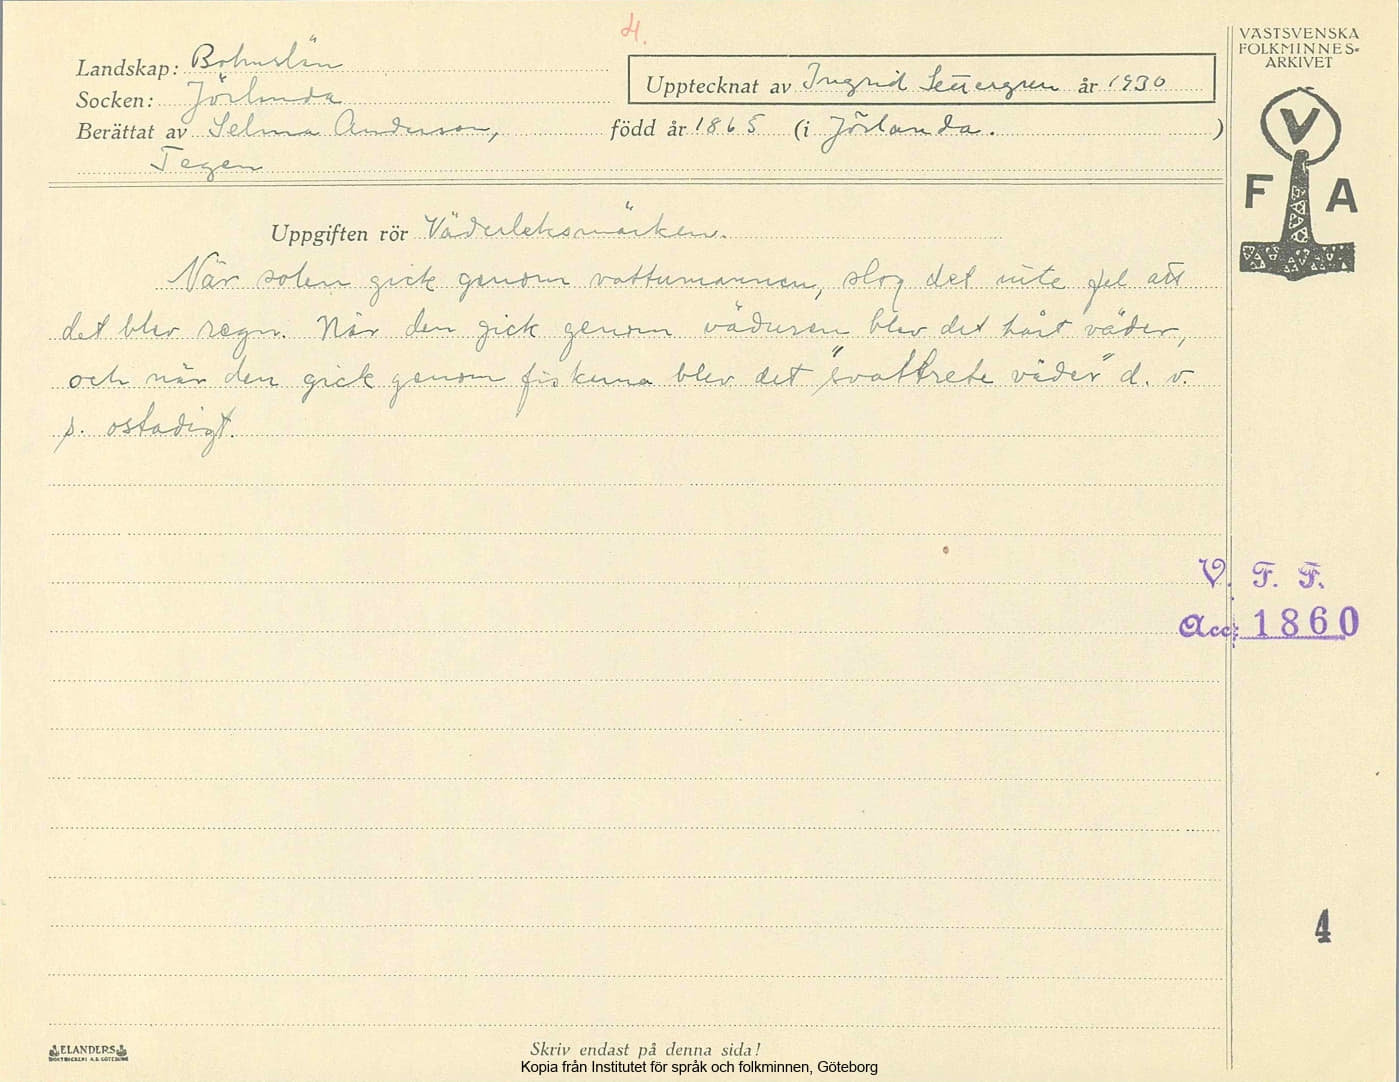 4.
VÄSTSVENSKA
FOLKMINNES-
ARKIVET
Landskap: Bohuslän
Upptecknat av Ingrid Settergren år 1930
Socken: Jörlanda
Berättat av Selma Anderson, född år 1865 (i Jörlanda. )
Tegen
V
F A
Uppgiften rör Väderleksmärken.
När solen gick genom vattumannen, slog det inte fel att
det blev regn. När den gick genom väduren blev det hårt väder,
och när den gick genom fiskarna blev det "svattrete väder" d. v.
s. ostadigt.
V. F. F.
Acc: 1860
4
ELANDERS
BOKTRYCKERI A.B. GÖTEBORG
Skriv endast på denna sida!
Kopia från Institutet för språk och folkminnen, Göteborg